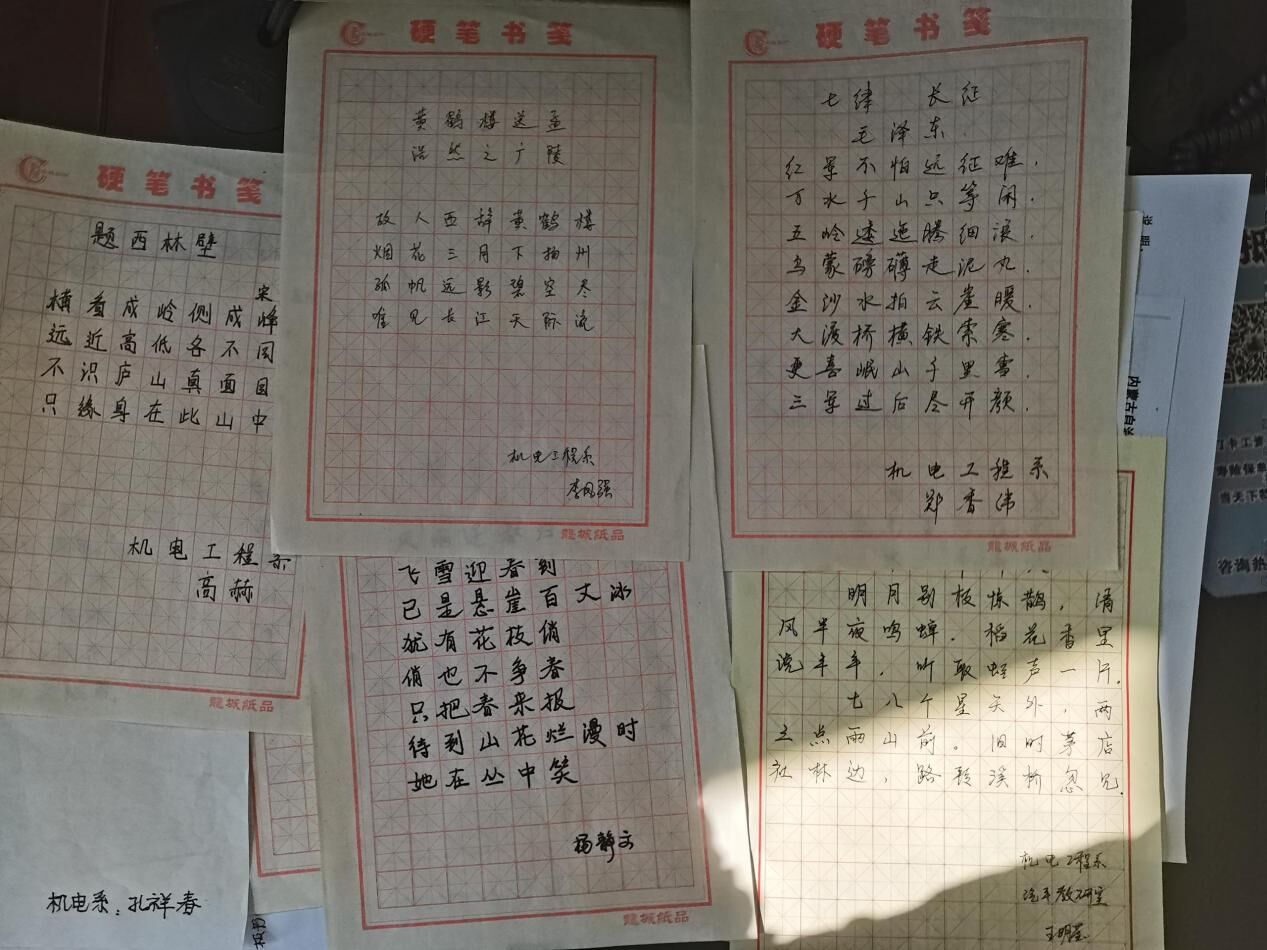 硬笔书笺
题西林壁
宋
横看成岭侧成峰
远近高低各不同
不识庐山真面目
只缘身在此山中
机电工程系
高赫
龍城纸品
机电系：孔祥春
硬笔书笺
黄鹤楼送孟
浩然之广陵
故人西辞黄鹤楼
烟花三月下扬州
孤帆远影碧空尽
唯见长江天际流
机电工程系
李凤强
龍城纸品
飞雪迎春到
已是悬崖百丈冰
犹有花枝俏
俏也不争春
只把春来报
待到山花烂漫时
她在丛中笑
杨静文
龍城纸品
硬笔书笺
七律 长征
毛泽东
红军不怕远征难.
万水千山只等闲.
五岭逶迤腾细浪.
乌蒙磅礴走泥丸.
金沙水拍云崖暖
大渡桥横铁索寒.
更喜岷山千里雪.
三军过后尽开颜.
机电工程系
郑香伟
龍城纸品
明月别枝惊鹊，清
风半夜鸣蝉.稻花香里
说丰年，听取蛙声一片.
七八个星天外，两
三点雨山前。旧时茅店
社林边，路转溪桥忽见.
机电工程系
汽车教研室
内蒙古自
打卡工资
寿险保单
当天下款
咨询热